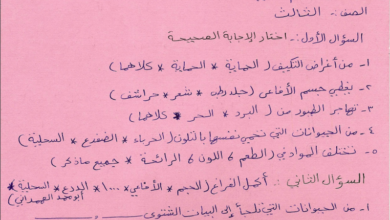 الصف:- الثالث
السؤال الأول:- اختار الإجابة الصحيحة
١- من أغراض التكيف ( الحماية * الحماية * كلاهما )
٢- يغطي جسم الأفاعي ( جلد رطب * شعر * حراشف )
٣- تهاجر الطيور من ( البرد * الحر * كلاهما )
٤- من الحيوانات التي تحمي نفسها بالتلون ( الحرباء * الضفدع * السحلية )
٥- تختلف المواد في ( الطعم ٦ اللون ٦ الرائحة * جميع ماذكر )
السؤال الثاني:- أكمل الفراغ ( الحجم * الأفاعي * ١٠٠٠ * الدرع * السحلية *
١- من الحيوانات التي تلجأ إلى البيات الشتوي